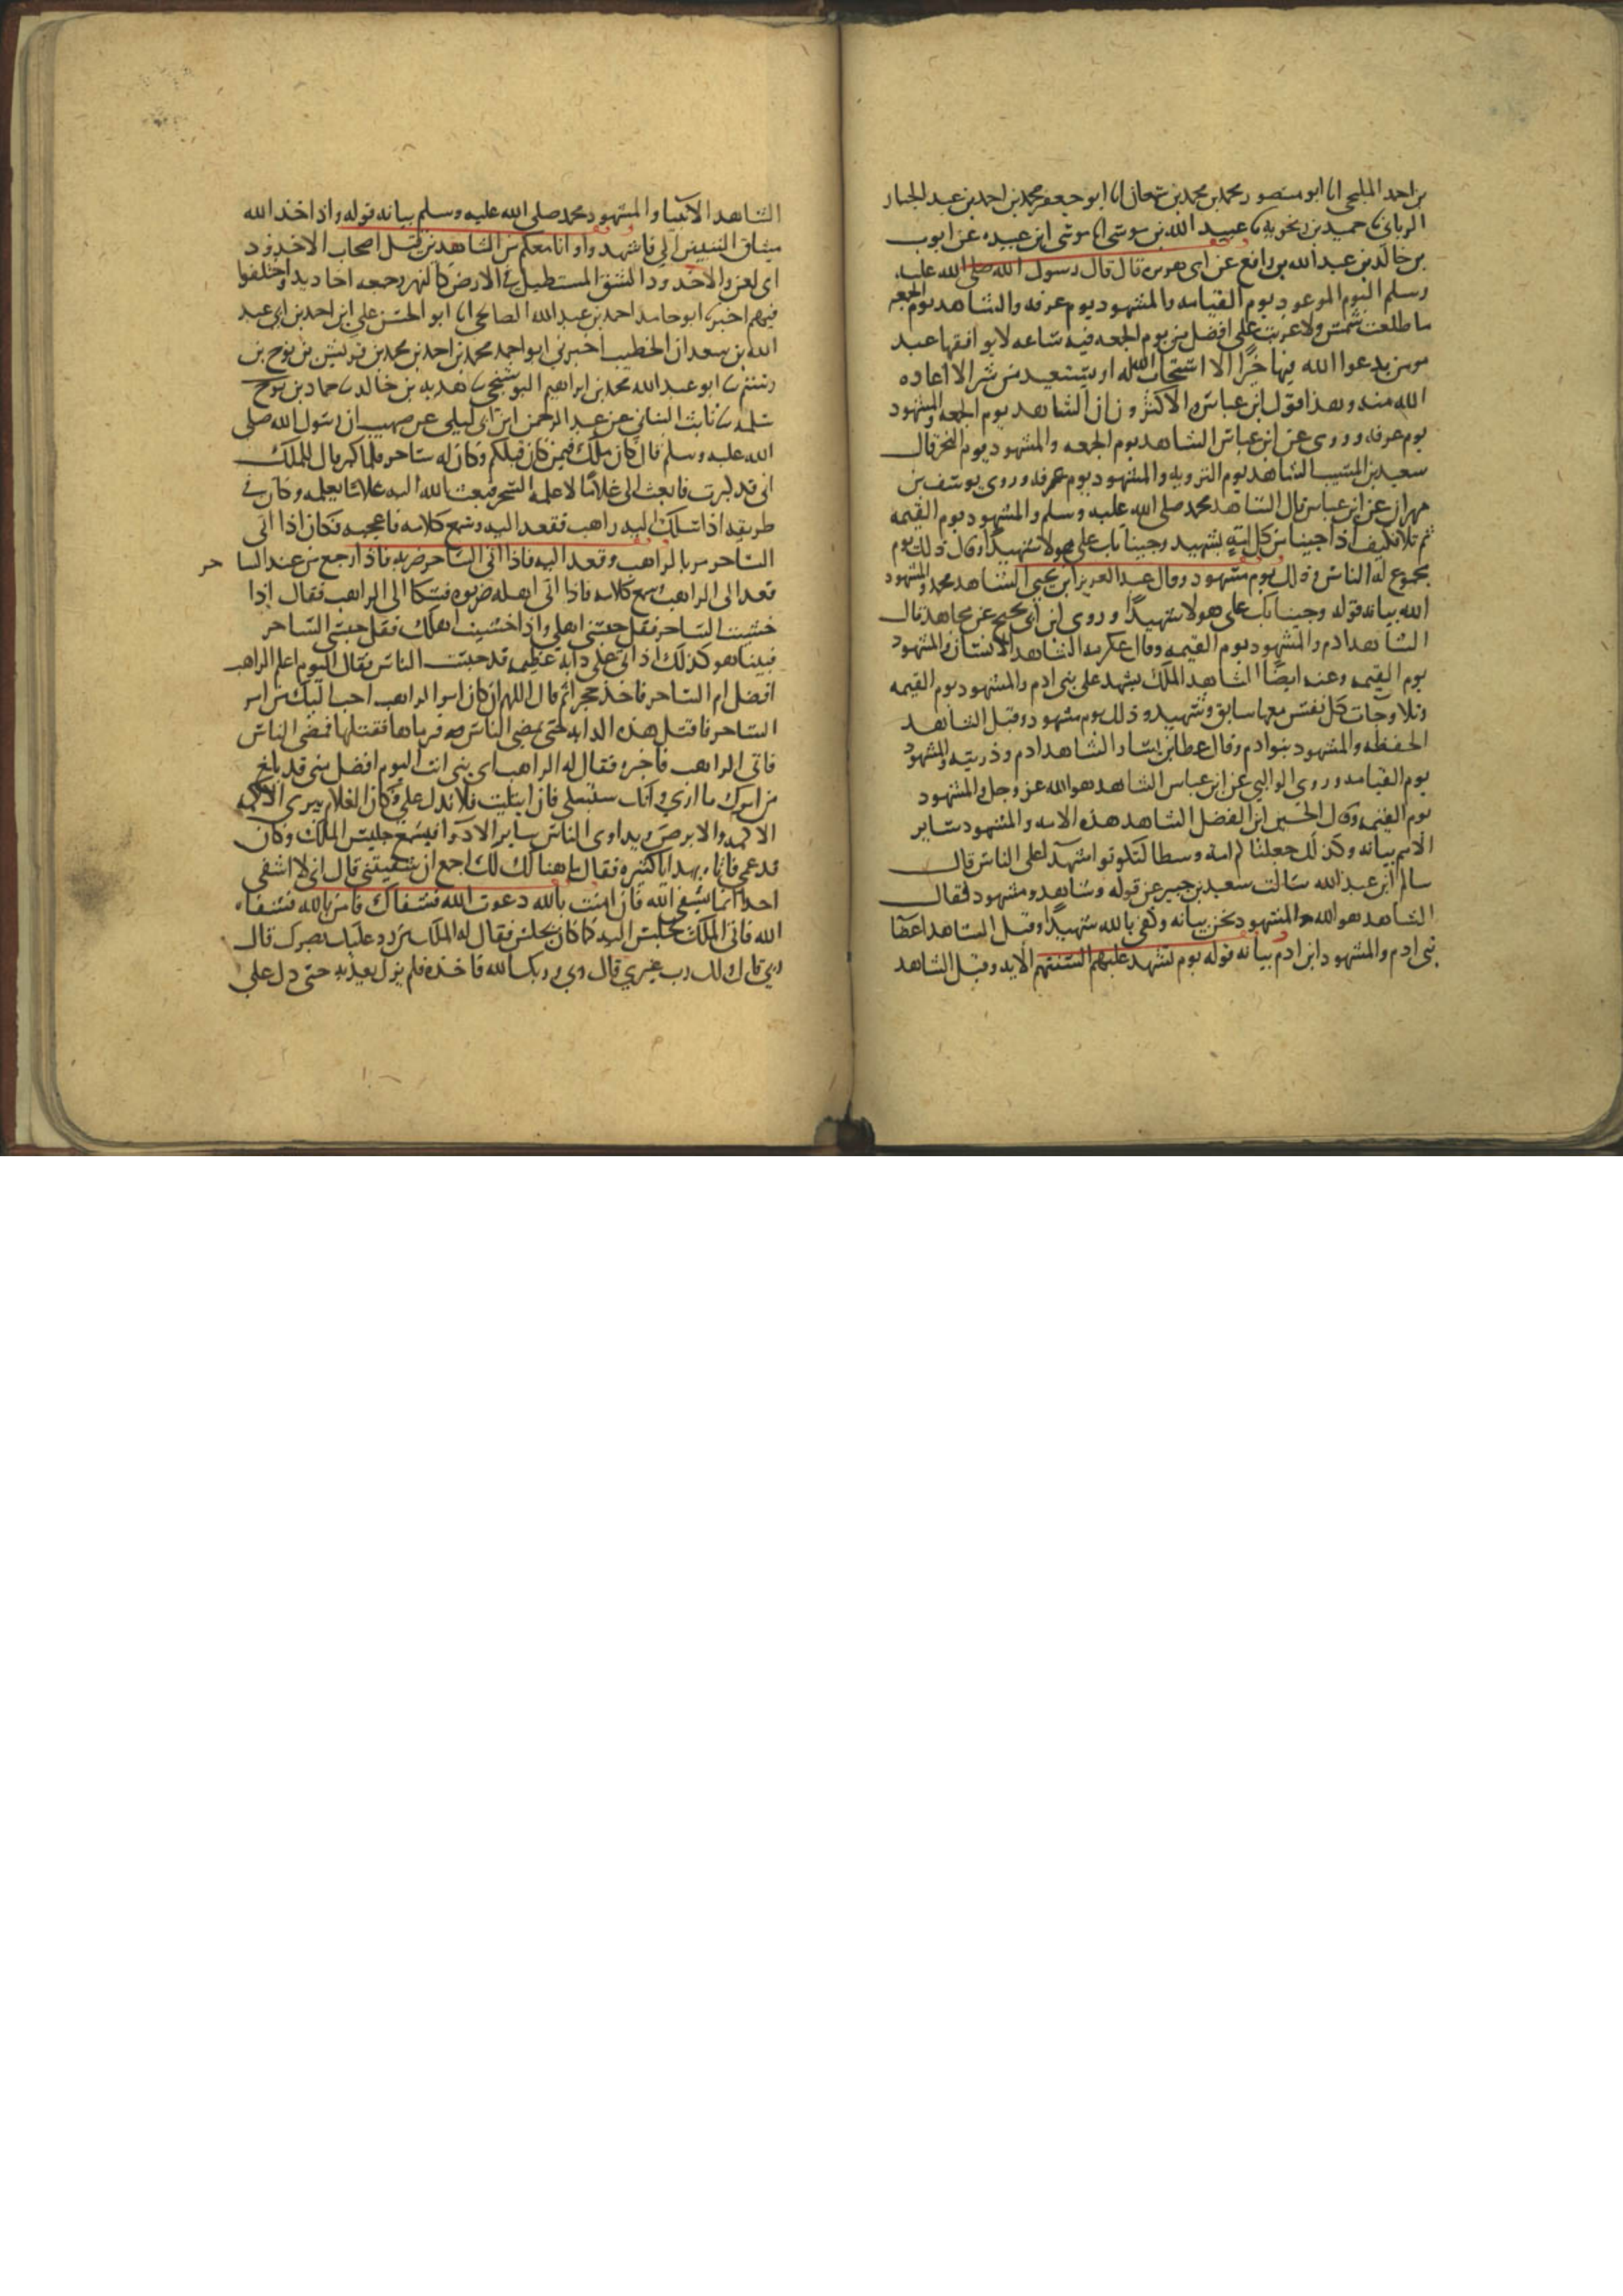 بن احمد المليحى انا ابو منصور محمد بن محمد بن سمعان انا ابو جعفر محمد بن احمد بن عبد الجبار
الرياني حميد بن زنجويه عبيد الله بن موسى انا موسى ابن عبيده عن ايوب
بن خالد بن عبد الله بن رافع عن ابى هريره قال قال رسول الله صلى الله عليه
وسلم اليوم الموعود يوم القيامه والمشهود يوم عرفه والشاهد يوم الجمعه
ما طلعت شمس ولا غربت على افضل من يوم الجمعه فيه ساعه لا يوافقها عبد
مومن يدعوا الله فيها خيرًا الا استجاب الله له او يستعيذ من شر الا اعاذه
الله منه وهذا قول ابن عباس والاكثرون ان الشاهد يوم الجمعه والمشهود
يوم عرفه وروى عن ابن عباس الشاهد يوم الجمعه والمشهود يوم النحر قال
سعيد بن المسيب الشاهد يوم الترويه والمشهود يوم عرفه وروى يوسف بن
مهران عن ابن عباس قال الشاهد محمد صلى الله عليه وسلم والمشهود يوم القيمه
ثم تلا فكيف اذا جينا من كل امةٍ بشهيد وجينا بك على هولا شهيدًا وقال ذلك يوم
مجموع له الناس وذلك يوم مشهود وقال عبد العزيز ابن يحيى الشاهد محمد والمشهود
الله بيانه قوله وجينا بك على هولا شهيدًا وروى ابن ابى نجيح عن مجاهد قال
الشاهد ادم والمشهود يوم القيمه وقال عكرمه الشاهد الانسان والمشهود
يوم القيمه وعنه ايضًا الشاهد الملك يشهد على بنى ادم والمشهود يوم القيمه
وتلا وجات كل نفس معها سايق وشهيد وذلك يوم مشهود وقيل الشاهد
الحفظه والمشهود بنو ادم وقال عطا بن يسار الشاهد ادم وذريته والمشهود
يوم القيامه وروى الوالبي عن ابن عباس الشاهد هو الله عز وجل والمشهود
يوم القيمه وقال الحسين ابن الفضل الشاهد هذه الامه والمشهود ساير
الامم بيانه وكذلك جعلناكم امة وسطا لتكونوا شهدآ على الناس قال
سالم ابن عبد الله سالت سعيد بن جبير عن قوله وشاهد ومشهود فقال
الشاهد هو الله والمشهود نحن بيانه وكفى بالله شهيدًا وقيل الشاهد اعضا
بنى ادم والمشهود ابن ادم بيانه قوله يوم تشهد عليهم السنتهم الايه وقيل الشاهد
الشاهد الانبيا والمشهود محمد صلى الله عليه وسلم بيانه قوله واذ اخذ الله
ميثاق النبيين الى فاشهدوا وانا معكم من الشاهدين قتل اصحاب الاخدود
اى لعن والاخدود الشق المستطيل فى الارض كالنهر وجمعه اخاديد واختلفوا
فيهم اخبرنا ابو حامد احمد بن عبد الله الصالحى انا ابو الحسن على ابن احمد بن ابى عبد
الله بن سعدان الخطيب اخبرنى ابو احمد محمد بن احمد بن محمد بن قريش بن نوح بن
رستم ابو عبد الله محمد بن ابراهيم البوشنجى هدبه بن خالد حماد بن نوح
سلمه ثابت البنانى عن عبد الرحمن ابن ابى ليلى عن صهيب ان رسول الله صلى
الله عليه وسلم قال كان ملك فيمن كان قبلكم وكان له ساحر فلما كبر قال للملك
انى قد كبرت فابعث الى غلامًا لاعلمه السحر فبعث الله اليه غلامًا يعلمه وكان فى
طريقه اذا سلك اليه راهب فقعد اليه وسمع كلامه فاعجبه فكان اذا اتى
الساحر مر بالراهب وقعد اليه فاذا اتى الساحر ضربه فاذا رجع من عند الساحر
قعد الى الراهب سمع كلامه فاذا اتى اهله ضربوه فشكا الى الراهب فقال اذا
خشيت الساحر فقل حبسنى اهلى واذا خشيت اهلك فقل حبسنى الساحر
فبينا هو كذلك اذ اتى على دابه عظيمه قد حبست الناس فقال اليوم اعلم الراهب
افضل ام الساحر فاخذ حجرًا ثم قال اللهم ان كان امر الراهب احب اليك من امر
الساحر فاقتل هذه الدابه حتى يمضى الناس فرماها فقتلها فمضى الناس
فاتى الراهب فاخبره فقال له الراهب اى بنى انت اليوم افضل منى قد بلغ
من امرك ما ارى وانك ستبتلى فان ابتليت فلا تدل على وكان الغلام يبرى الاكمه
الاكمه والابرص ويداوى الناس ساير الادوا فسمع جليس الملك وكان
قد عمى فاتاه بهدايا كثيره فقال ما هنا لك لك اجمع ان شفيتنى قال انى لا اشفى
احدا انما يشفى الله فان امنت بالله دعوت الله فشفاك فامن بالله فشفاه
الله فاتى الملك فجلس اليه كما كان يجلس فقال له الملك من رد عليك بصرك قال
ربى قال ولك رب غيرى قال ربى وربك الله فاخذه فلم يزل يعذبه حتى دل على